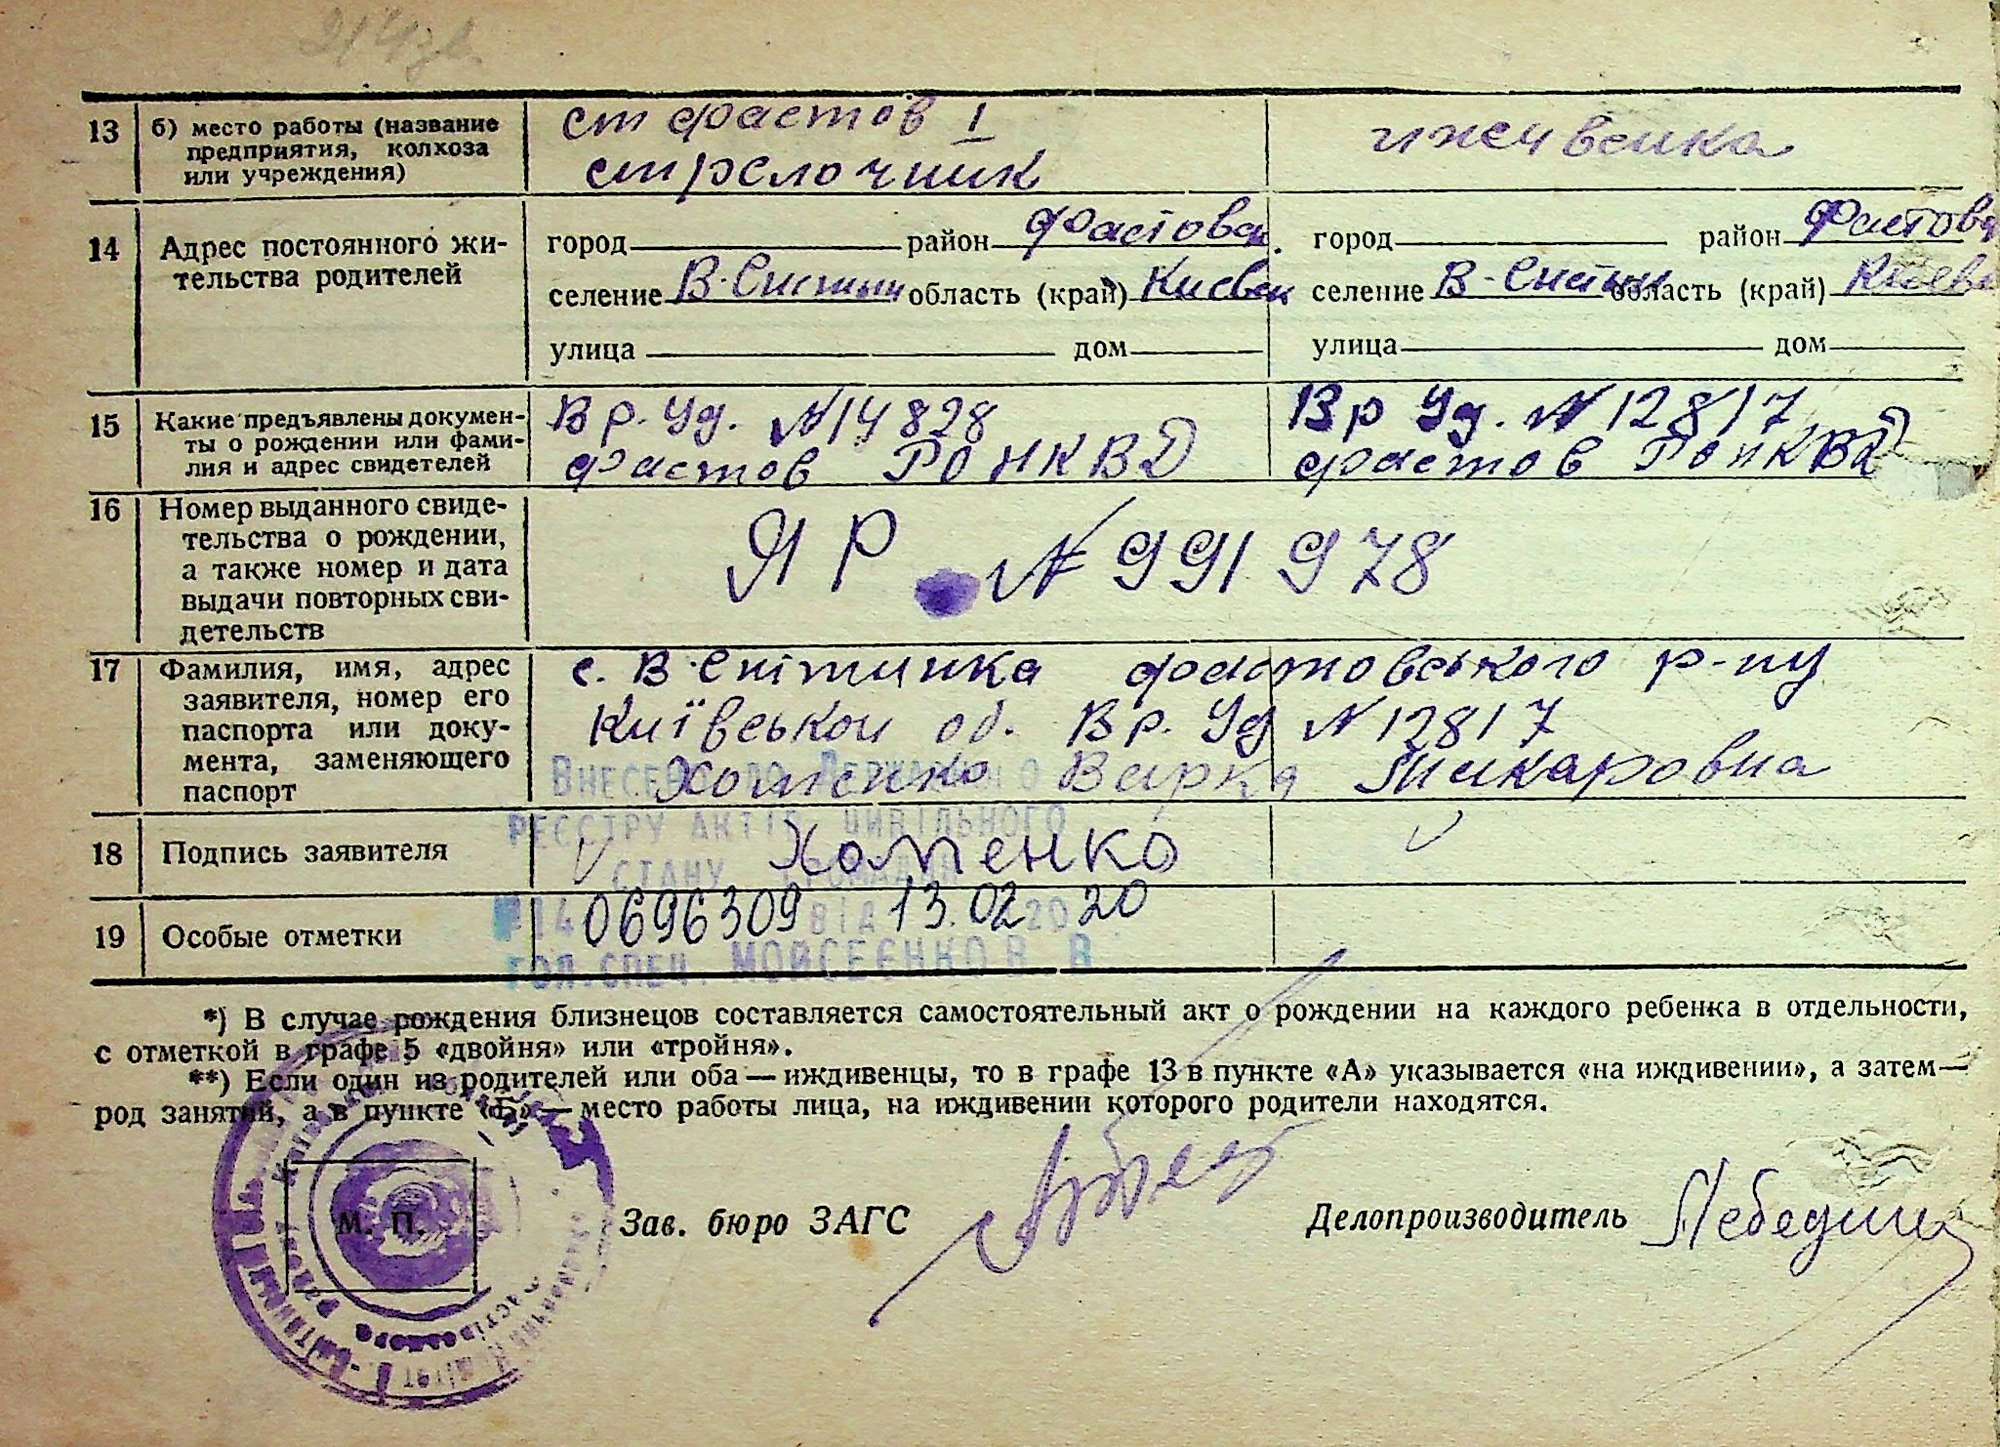 13 б) место работы (название
предприятия, колхоза
или учреждения)
ст фастов I
стрелочник
14 Адрес постоянного жи-
тельства родителей
город район Фастовск.
селение В-Снетын область (край) Киевск
улица дом
город район Фастовс
селение В-Снетын область (край) Киевс
улица дом
15 Какие предъявлены докумен-
ты о рождении или фами-
лия и адрес свидетелей
Вр. Уд. №14828
фастов РОНКВД
Вр Уд. №12817
фастов РОНКВД
16 Номер выданного свиде-
тельства о рождении,
а также номер и дата
выдачи повторных сви-
детельств
ЯР № 991978
17 Фамилия, имя, адрес
заявителя, номер его
паспорта или доку-
мента, заменяющего
паспорт
с. В-Снітинка фастовського р-ну
Київськои об. Вр. Уд №12817
Хоменко Вирка Макаровна
18 Подпись заявителя
Хоменко
19 Особые отметки
Внесено до Державного
реєстру актів цивільного
стану громадян
№ 140696309 від 13.02 2020
Гол.спец. Мойсеєнко В В
*) В случае рождения близнецов составляется самостоятельный акт о рождении на каждого ребенка в отдельности,
с отметкой в графе 5 «двойня» или «тройня».
**) Если один из родителей или оба — иждивенцы, то в графе 13 в пункте «А» указывается «на иждивении», а затем—
род занятий, а в пункте «Б» — место работы лица, на иждивении которого родители находятся.
М. П.
Зав. бюро ЗАГС
Делопроизводитель